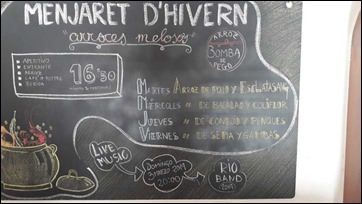 MENJARET D'HIVERN
"arroces melosos"
ARROZ
BOMBA
DE
PEGO
APERITIVO
ENTRANTE
ARROZ
CAFÉ O POSTRE
BEBIDA
16'50
MARTES ARROZ DE POLLO Y ESCLATASANG
MIÉRCOLES " DE BACALAO Y COLIFLOR
JUEVES " DE CONEJO Y PENQUES
VIERNES " DE SEPIA Y GAMBAS
LIVE MUSIC
DOMINGO
3 MARZO 2019
20:00
RIO
BAND
(2019)